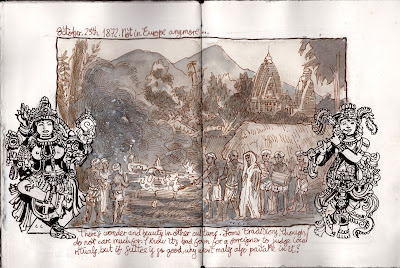 October, 29th, 1872. Not in Europe anymore...
There's wonder and beauty in other cultures. Some traditions, though,
do not care much for. I know it's bad form for a foreigner to judge local
rituals, but if suttee is so good, why don't males also partake in it?